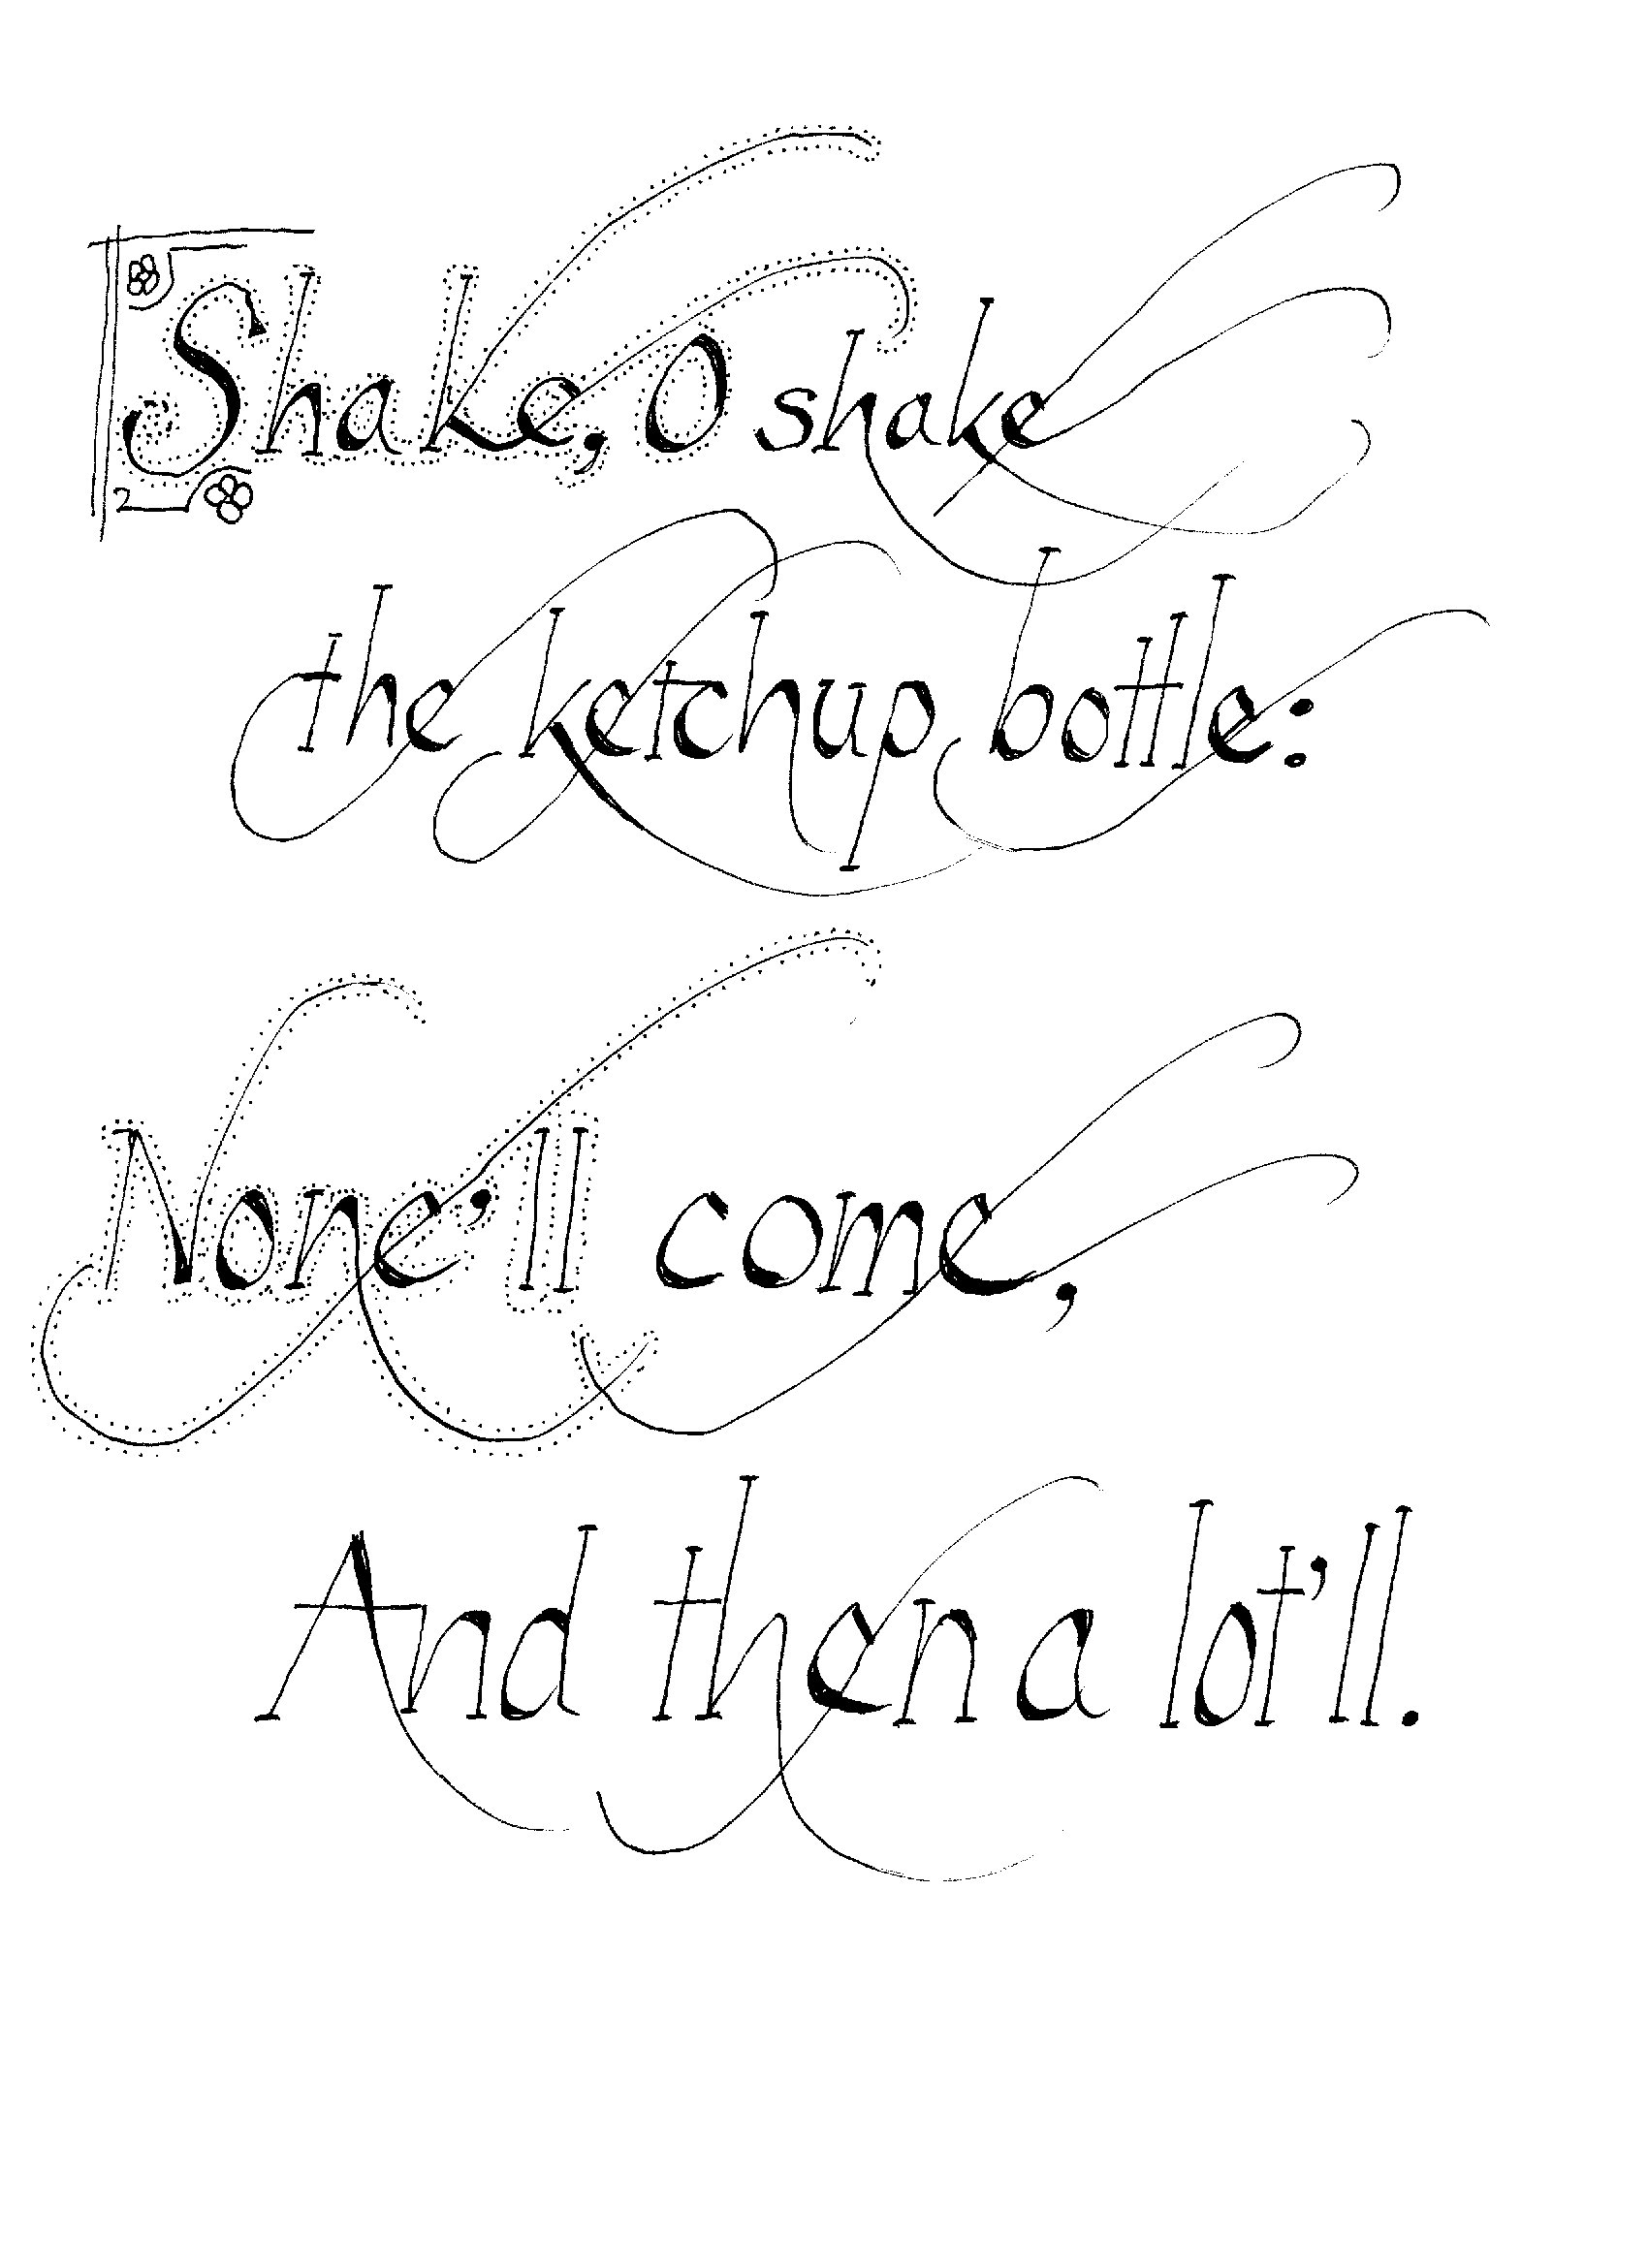 Shake, O shake
the ketchup bottle:
None'll come,
And then a lot'll.